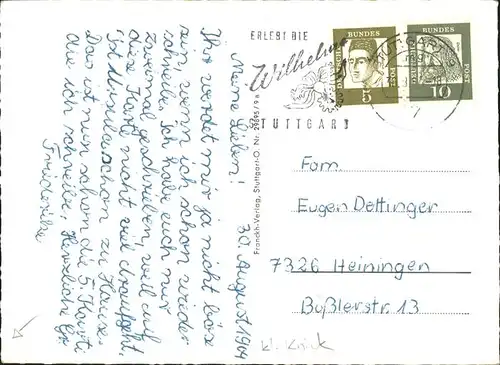 30. August 1964
Meine Lieben!
Ihr werdet mir ja nicht bös
sein, wenn ich schon wieder
schreibe. Ich habe euch nur
zweimal geschrieben, weil auf
die Karte nicht viel draufgeht.
Schließlich schon zu Hause.
Das ist nun schon die 5. Karte
die ich schreibe. Herzliche Gr.
Friederike
Franckh-Verlag, Stuttgart-O. Nr. 29895/9a
ERLEBT DIE
Wilhelma
STUTTGART
DEUTSCHE BUNDESPOST
5
DEUTSCHE BUNDESPOST
10
Fam.
Eugen Dettinger
7326 Heiningen
Boßlerstr. 13